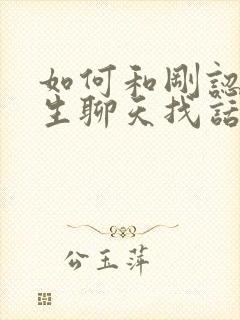 如何和剛認
生聊天找話
公玉萍